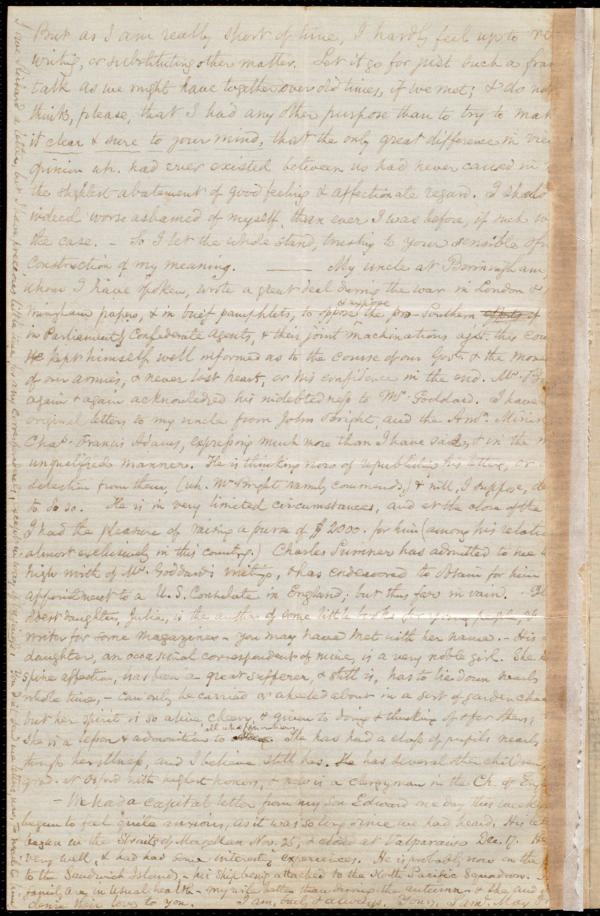 But as I am really short of time, I hardly feel up to re
writing, or substituting other matter. Let it go for just such a fra
talk as we might have together over old times, if we met; & do not
think, please, that I had any other purpose than to try to mak
it clear & sure to your mind, that the only great difference in
opinion wh. had ever existed between us had never caused in
the slightest abatement of good feeling & affectionate regard. I should
indeed worse ashamed of myself than ever I was before, if such w
the case. - So I let the whole stand, trusting to your sensible
construction of my meaning. —— My uncle at Birmingham,
whom I have spoken, wrote a great deal during the war in London &
mingham papers, & in brief pamphlets, to oppose & expose the Southern
in Parliament, Confederate Agents, & their joint machinations agst. this cou
He kept himself well informed as to the course of our Govt. & the move
of our armies, & never lost heart, or his confidence in the end. Mr.
again & again acknowledged his indebtedness to Mr. Goddard. I have
original letters to my uncle from John Bright, and the Amn. Minis
Chas. Francis Adams, expressing much more than I have said, & in the m
unqualified manner. He is thinking now of republishing his letters, or
selection from them, (wh. Mr. Bright warmly commends,) & will, I suppose, de
to do so. He is in very limited circumstances, and at the close of the
I had the pleasure of raising a purse of $2000. for him (among his relati
almost exclusively in this country.) Charles Sumner has admitted to me
high worth of Mr. Goddard's writings, & has endeavored to obtain for him
appointment to a U.S. Consulate in England; but thus far in vain.
dest daughter, Julia, is the author of some little books for young people,
writer for some magazines - you may have met with her name. - His
daughter, an occasional correspondent of mine, is a very noble girl. She
spine affection, has been a great sufferer, & still is, has to lie down nearly
whole time, - can only be carried or wheeled about in a sort of garden chair
but her spirit is so alive, cheery, & given to doing & thinking of & for others,
She is a lesson & admonition to all who She has had a class of pupils nearly
through her illness, and I believe still has. He has several other children,
grad. at Oxford with highest honors, & now is a clergyman in the Ch. of Eng
- We had a capital letter from my son Edward one day this week
begun to feel quite anxious, as it was so long since we had heard. His let
began in the Straits of Magellan Nov. 25, & closed at Valparaiso Dec. 17.
very well, & had had some interesting experiences. He is probably now on the
to the Sandwich Islands, - his ship being attached to the North Pacific Squadron.
family are in usual health - my wife better than during the autumn - & she and
desire their love to you. I am, truly & always, Yours, Saml. May